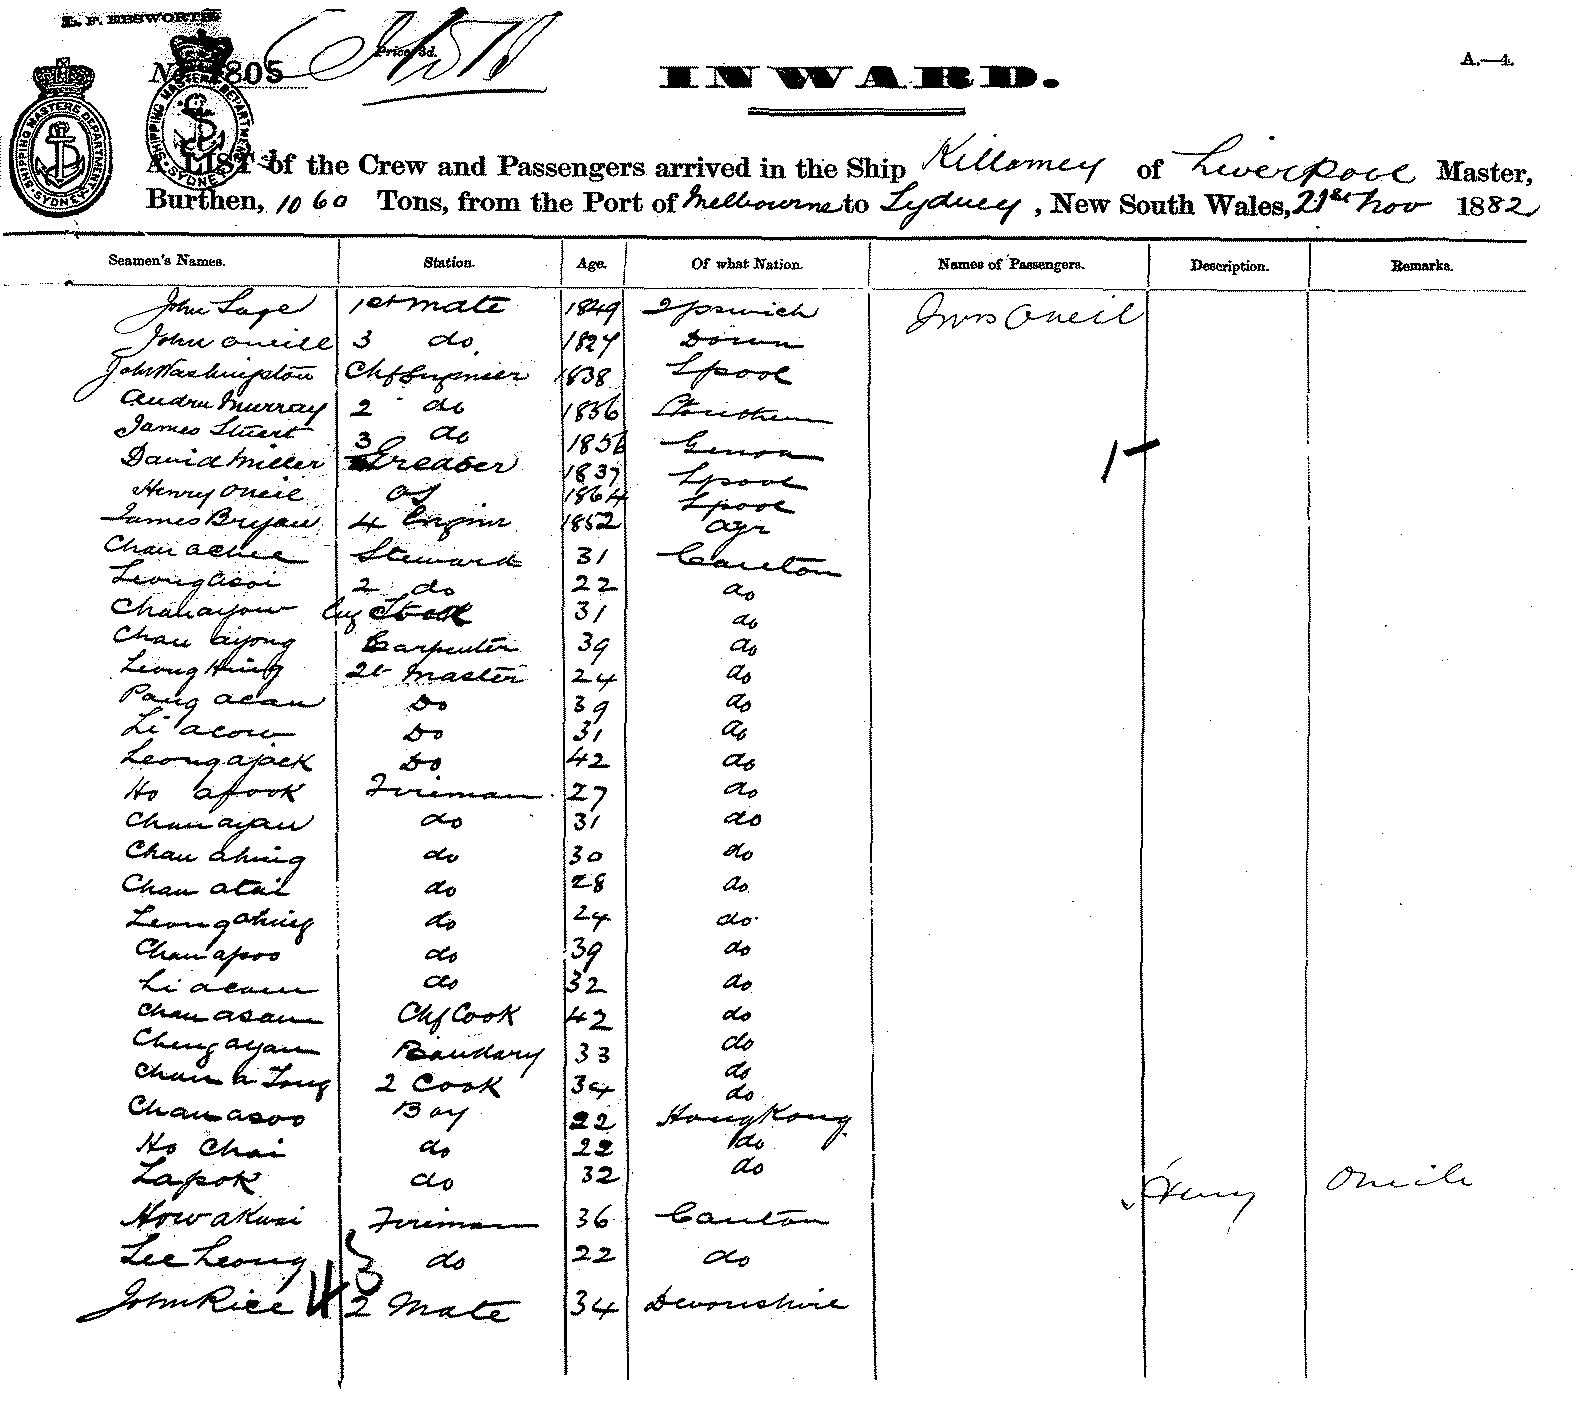 L. F. EBSWORTH
Price 3d.
No. 1805
INWARD.
A.—4.
SHIPPING MASTERS DEPARTMENT SYDNEY
SHIPPING MASTERS DEPARTMENT SYDNEY
A LIST of the Crew and Passengers arrived in the Ship Killarney of Liverpool Master,
Burthen, 1060 Tons, from the Port of Melbourne to Sydney, New South Wales, 21st Nov 1882
Seamen's Names. Station. Age. Of what Nation. Names of Passengers. Description. Remarks.
John Sage 1st Mate 1849 Ipswich Mrs Oneil
John Oneill 3 do 1827 Down
John Washington Chf Engineer 1838 Lpool
Andrw Murray 2 do 1856
James Stuart 3 do 1856 Genoa
David Miller Greaser 1837 Lpool
Henry Oneil OS 1864 Lpool
James Bryan 4 Enginr 1852 Ayr
Chan achee Steward 31 Canton
Leong asoi 2 do 22 do
Chan ayow Eng Cook 31 do
Chan ayong Carpenter 39 do
Leong Hing 2t Master 24 do
Pang acan Do 39 do
Li acow Do 31 do
Leong ajack Do 42 do
Ho afook Fireman 27 do
Chan ayan do 31 do
Chan ahing do 30 do
Chan atai do 28 do
Leong ahing do 24 do
Chan apoo do 39 do
Li acam do 32 do
Chan asam Chf Cook 42 do
Cheng ayam 33 do
Chan a Tong 2 Cook 34 do
do
Chan asoo Boy 22 HongKong
Ho Chai do 22 do
Lapok do 32 do
Henry Oneile
How akwai Fireman 36 Canton
Lee Leong do 22 do
John Rice 2 Mate 34 Devonshire